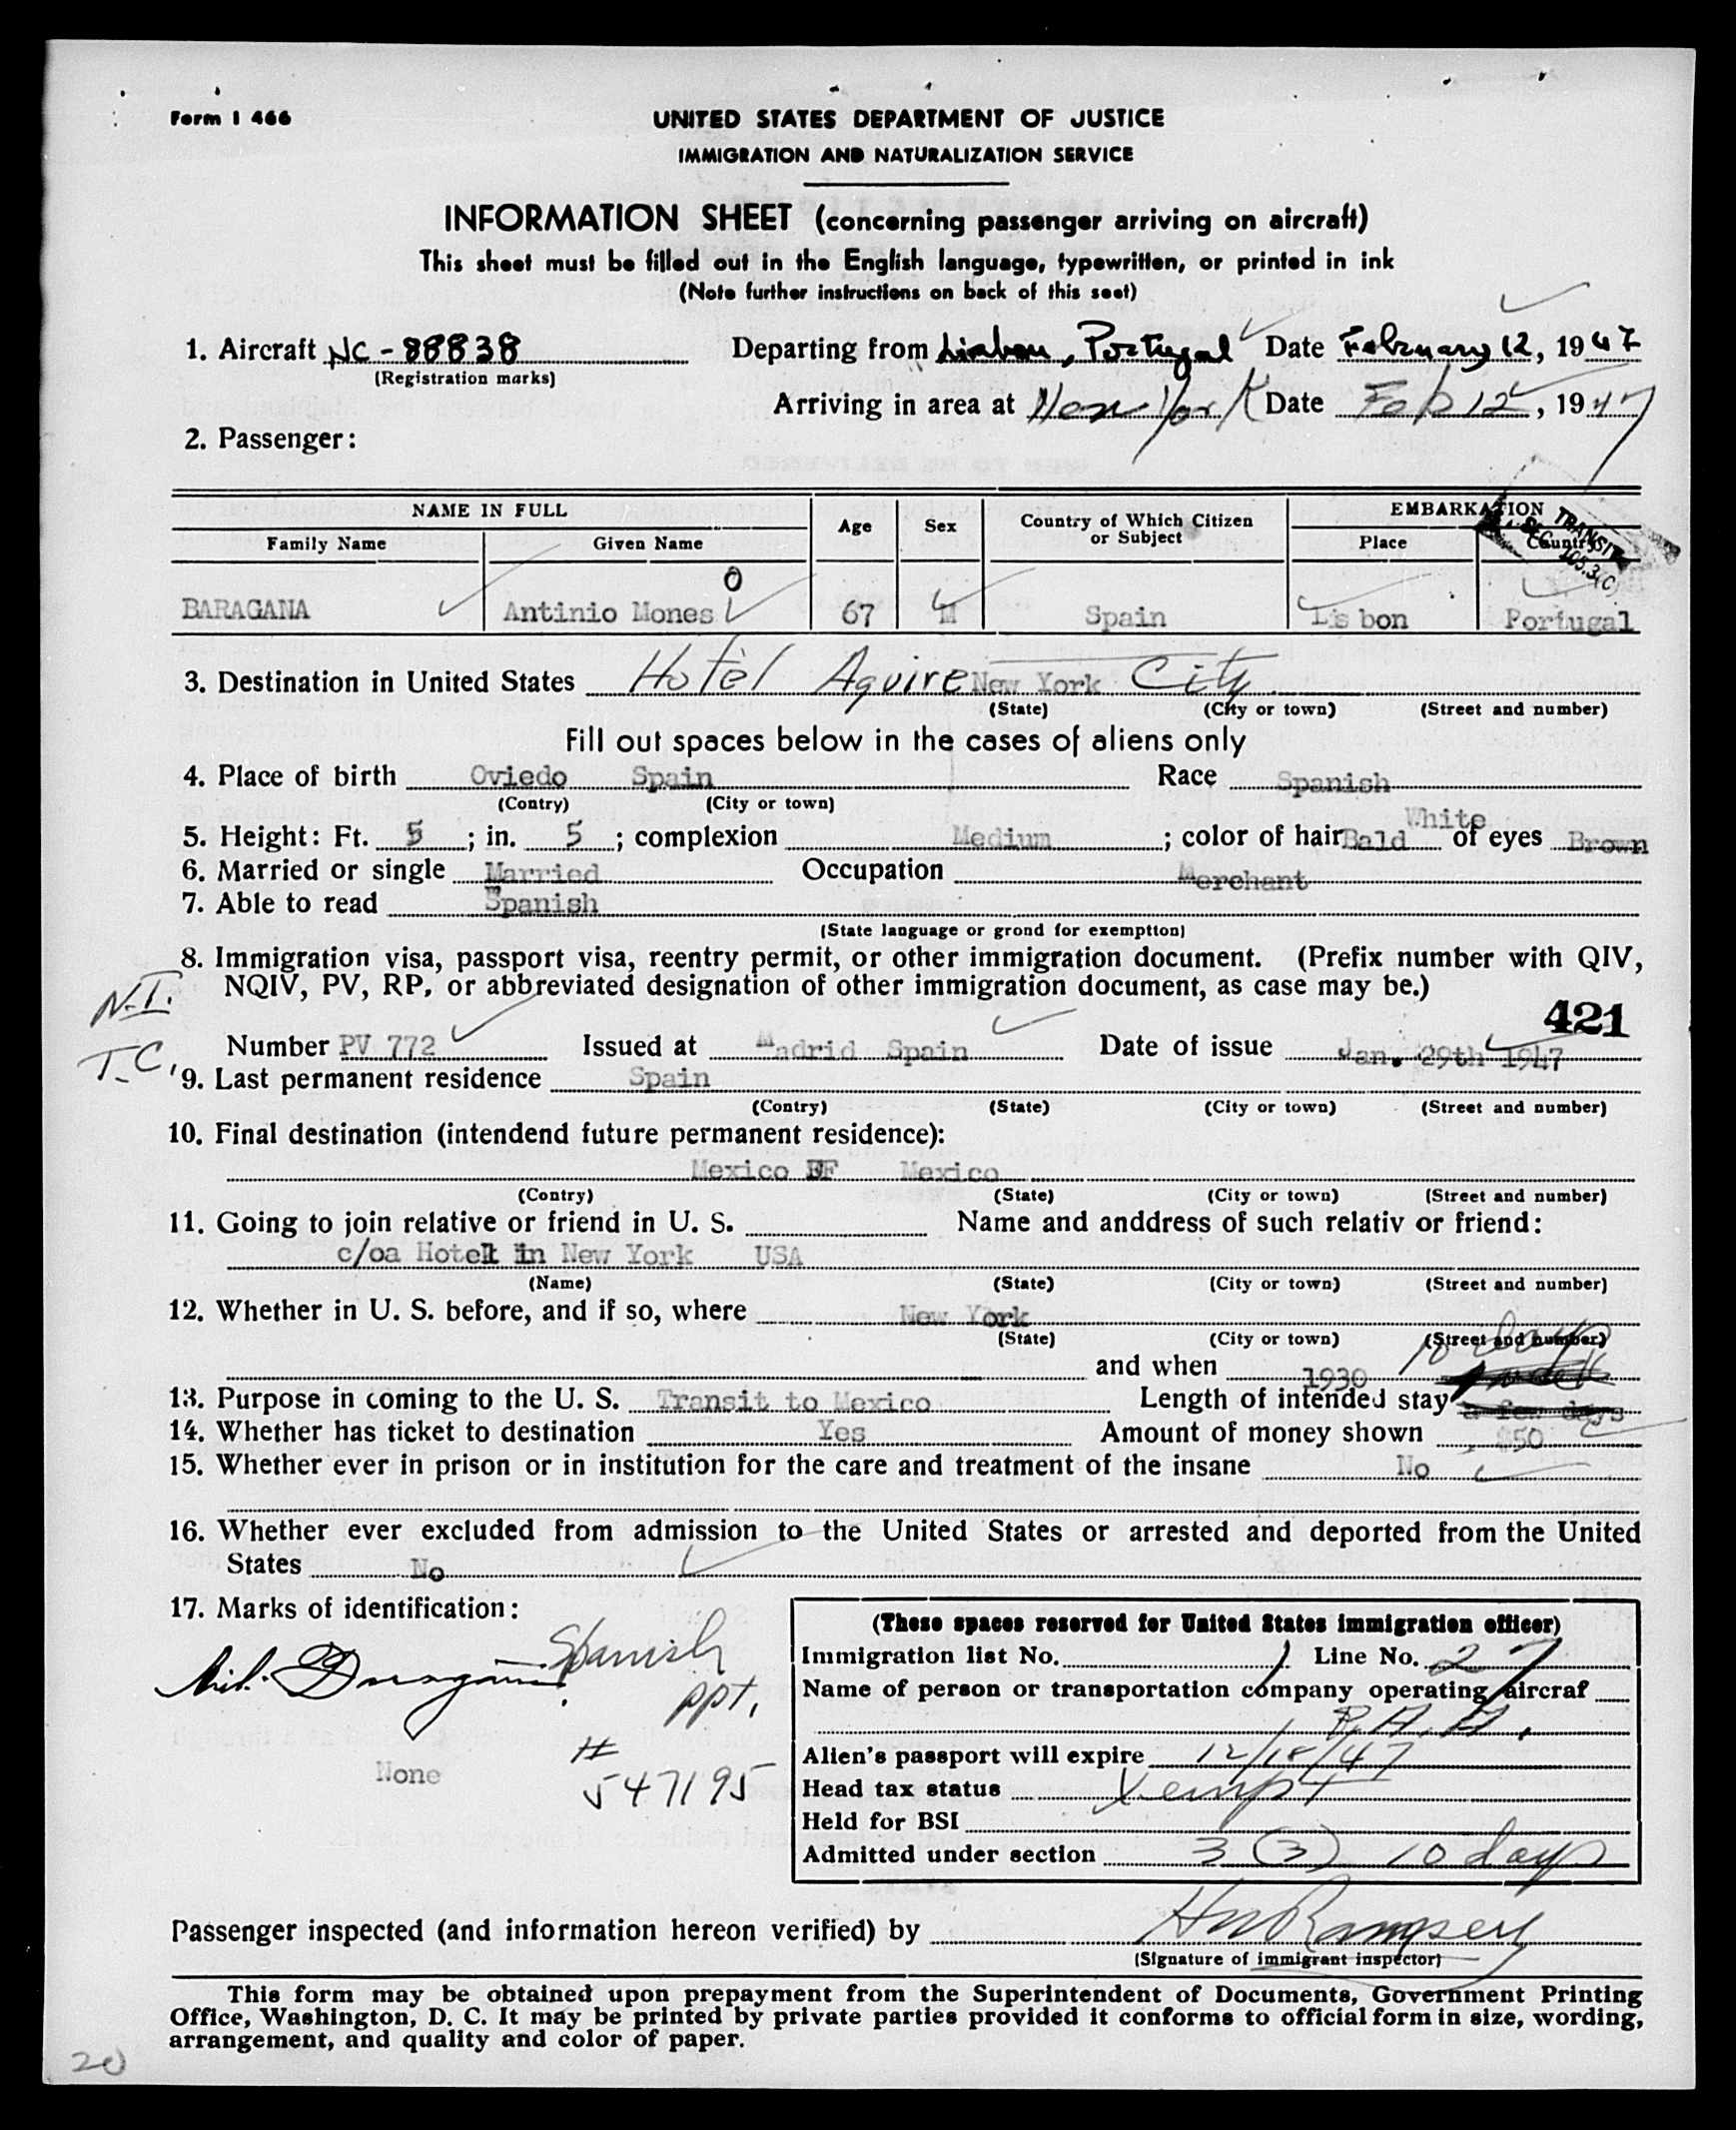 Form I 466
UNITED STATES DEPARTMENT OF JUSTICE
IMMIGRATION AND NATURALIZATION SERVICE
INFORMATION SHEET (concerning passenger arriving on aircraft)
This sheet must be filled out in the English language, typewritten, or printed in ink
(Note further instructions on back of this seet)
1. Aircraft NC-88838 Departing from Lisbon, Portugal Date February 12, 1947
(Registration marks)
Arriving in area at New York Date Feb 12, 1947
2. Passenger:
NAME IN FULL Age Sex Country of Which Citizen or Subject EMBARKATION
Family Name Given Name Place Country
TRANSIT
SEC. 105.3(C)
0
BARAGANA Antinio Mones 67 M Spain Lisbon Portugal
3. Destination in United States Hotel Aguire New York City
(State) (City or town) (Street and number)
Fill out spaces below in the cases of aliens only
4. Place of birth Oviedo Spain Race Spanish
(Contry) (City or town)
5. Height: Ft. 5 ; in. 5 ; complexion Medium ; color of hair Bald White of eyes Brown
6. Married or single Married Occupation Merchant
7. Able to read Spanish
(State language or grond for exemption)
8. Immigration visa, passport visa, reentry permit, or other immigration document. (Prefix number with QIV,
NQIV, PV, RP, or abbreviated designation of other immigration document, as case may be.)
N.I.
421
T.C.
Number PV 772 Issued at Madrid Spain Date of issue Jan. 29th 1947
9. Last permanent residence Spain
(Contry) (State) (City or town) (Street and number)
10. Final destination (intendend future permanent residence):
Mexico DF Mexico
(Contry) (State) (City or town) (Street and number)
11. Going to join relative or friend in U. S. Name and anddress of such relativ or friend:
c/oa Hotel in New York USA
(Name) (State) (City or town) (Street and number)
12. Whether in U. S. before, and if so, where New York
(State) (City or town) (Street and number)
and when 1930 10 days
13. Purpose in coming to the U. S. Transit to Mexico Length of intended stay a few days
14. Whether has ticket to destination Yes Amount of money shown $50
15. Whether ever in prison or in institution for the care and treatment of the insane No
16. Whether ever excluded from admission to the United States or arrested and deported from the United
States No
17. Marks of identification:
Spanish
ppt.
#
547195
None
(These spaces reserved for United States immigration officer)
Immigration list No. 1 Line No. 27
Name of person or transportation company operating aircraf
P.A.A.
Alien's passport will expire 12/18/47
Head tax status Xempt
Held for BSI
Admitted under section 3 (3) 10 days
Passenger inspected (and information hereon verified) by HW Rampsey
(Signature of immigrant inspector)
This form may be obtained upon prepayment from the Superintendent of Documents, Government Printing
Office, Washington, D. C. It may be printed by private parties provided it conforms to official form in size, wording,
arrangement, and quality and color of paper.
20